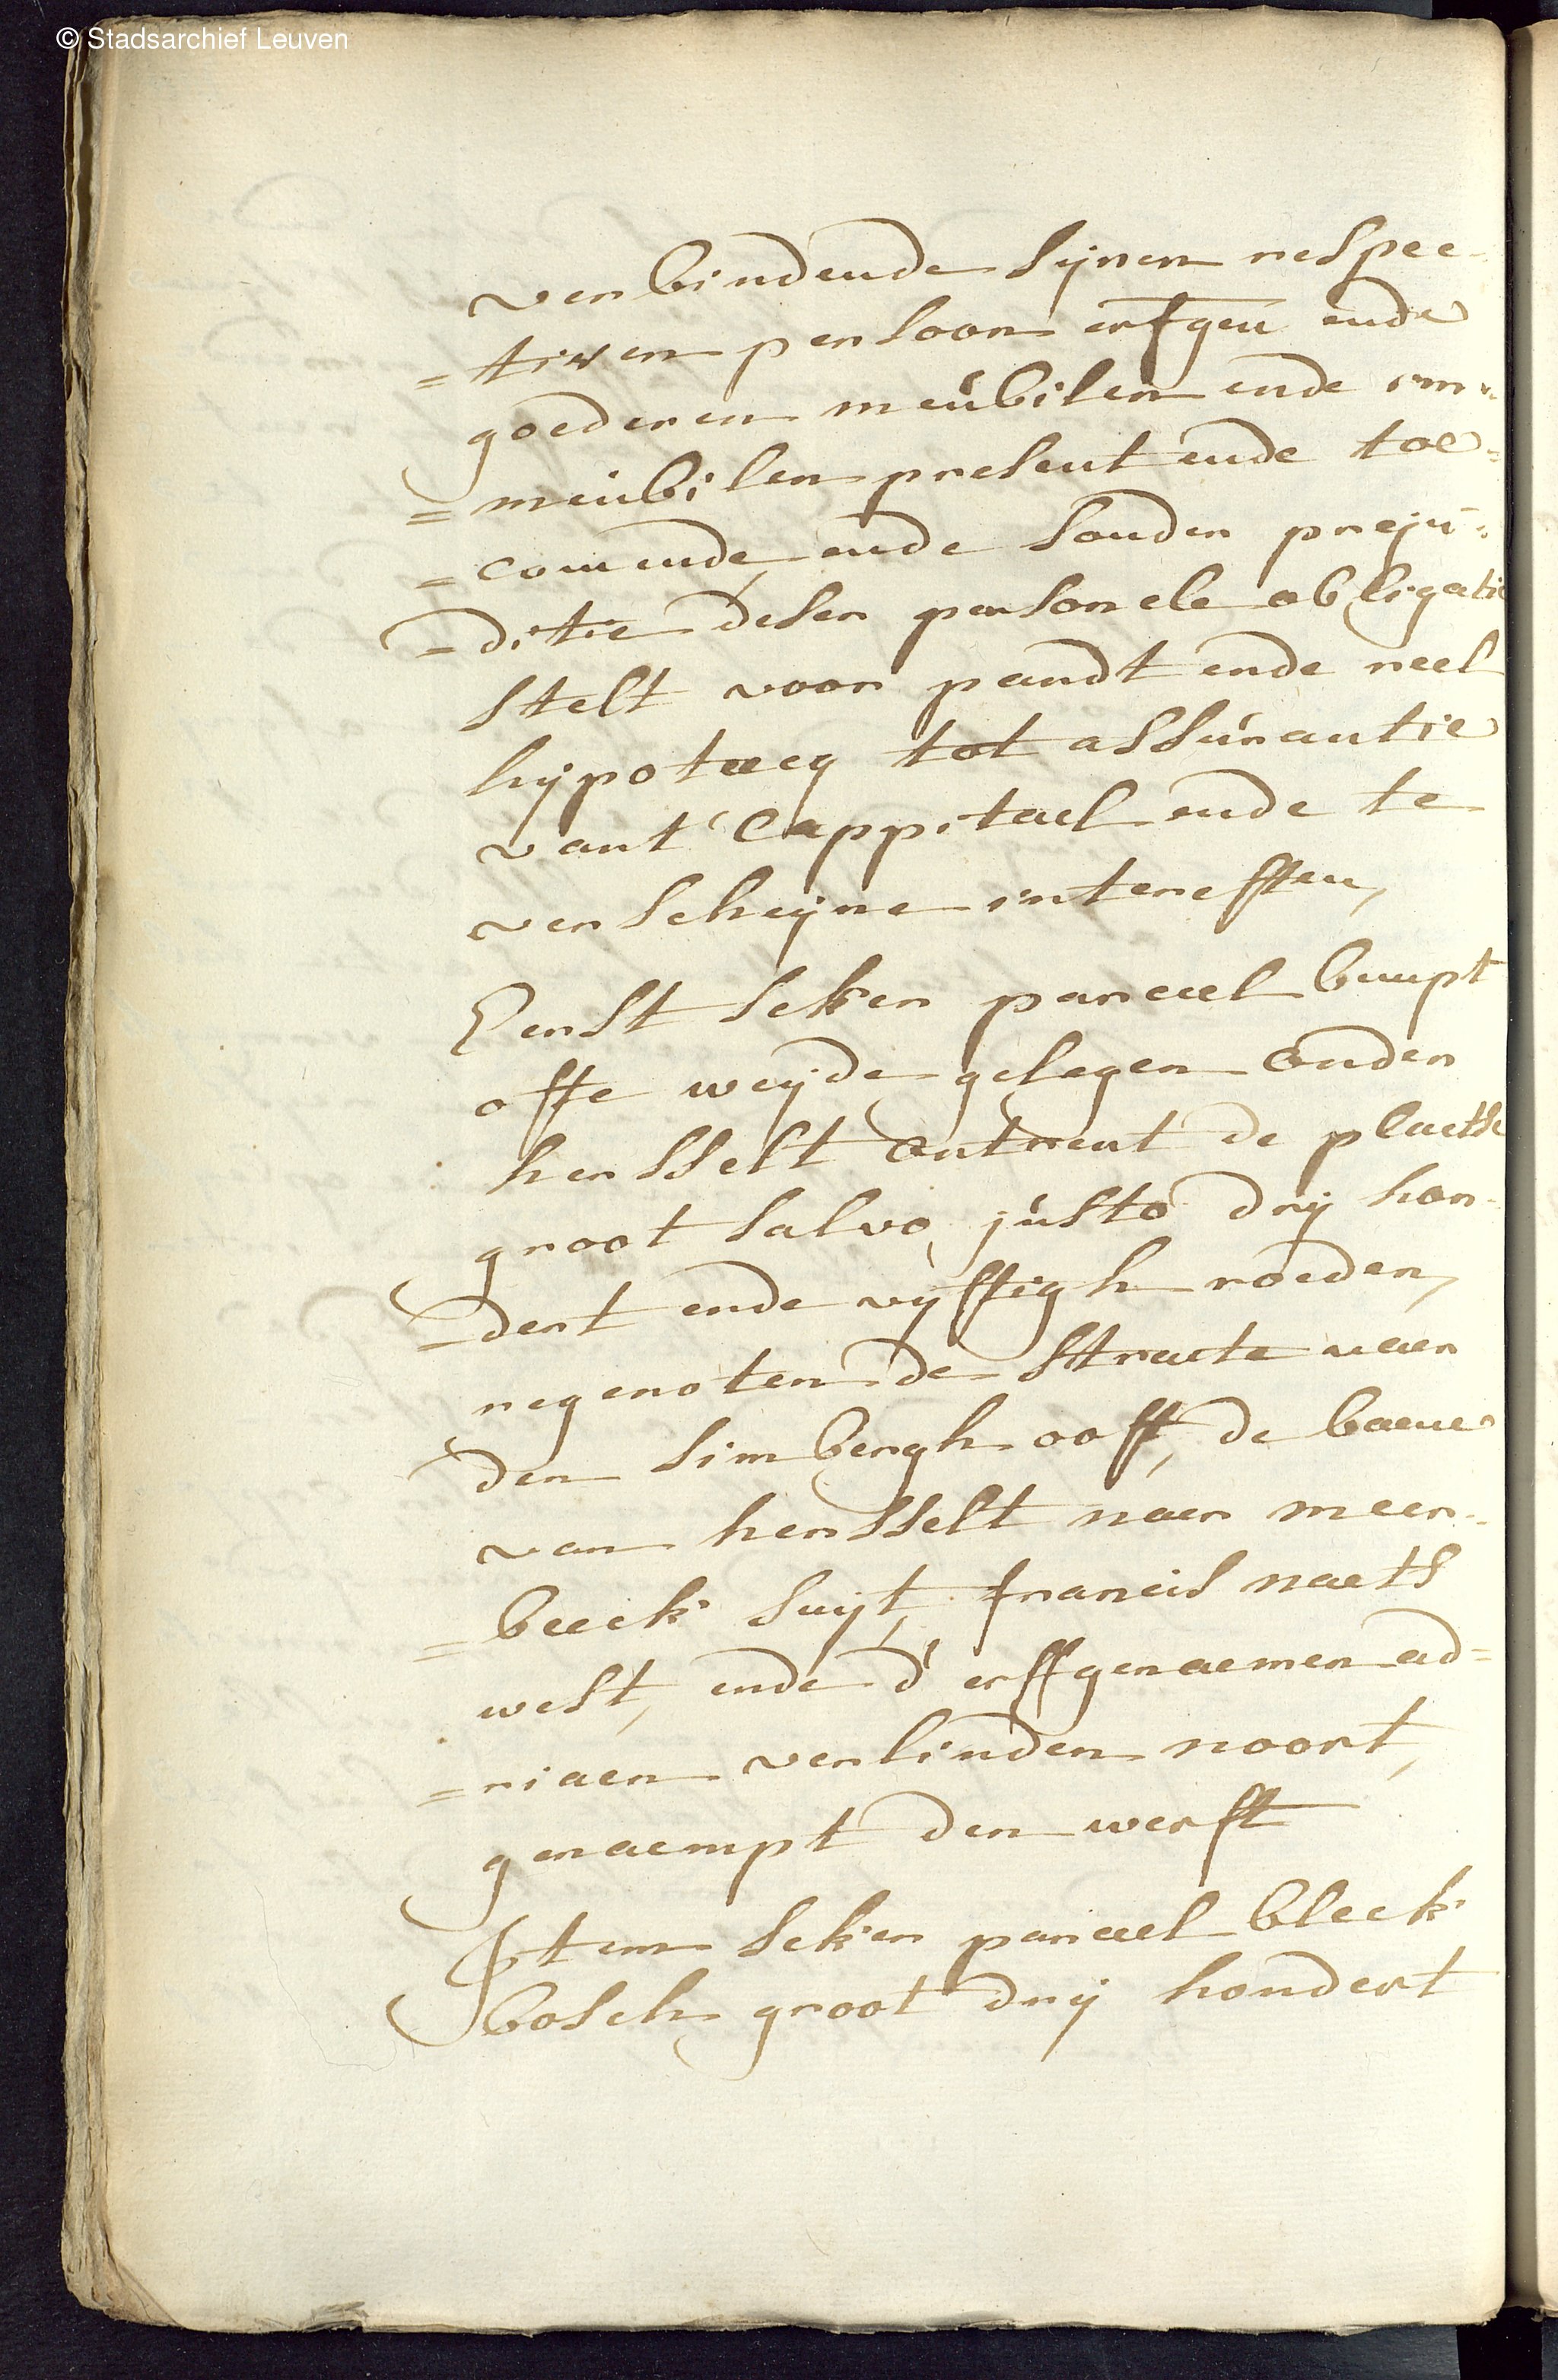 © Stadsarchief Leuven
verbindende sijnen respec-
=tiven persoon erfgen ende
goederen meubilen ende im=
=meubilen present ende toe=
=comende, ende sonder preju=
=ditie deser personele obligatie
stelt voor pandt ende reel
hijpoteecq tot assurantie
vant' Cappitael ende te
verscheijne interessen,
Eerst seker parceel bempt
offe weijde gelegen onder
hersselt ontrent de plaetse
groot salvo justo drij hon-
=dert ende vijfftigh roeden,
regenoten de straete naer
den simbergh oost, de baene
van hersselt naer meer=
=beeck suijt, francis naets
west, ende d' erffgenaemen ad=
=riaen verlinden noort,
genaempt den werft
Item seker parceel bleck
bosch groot drij hondert